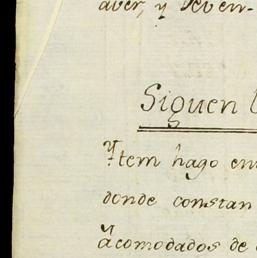 aver, y Seven-
Siguen
Ytem hago en
donde constan
acomodados de